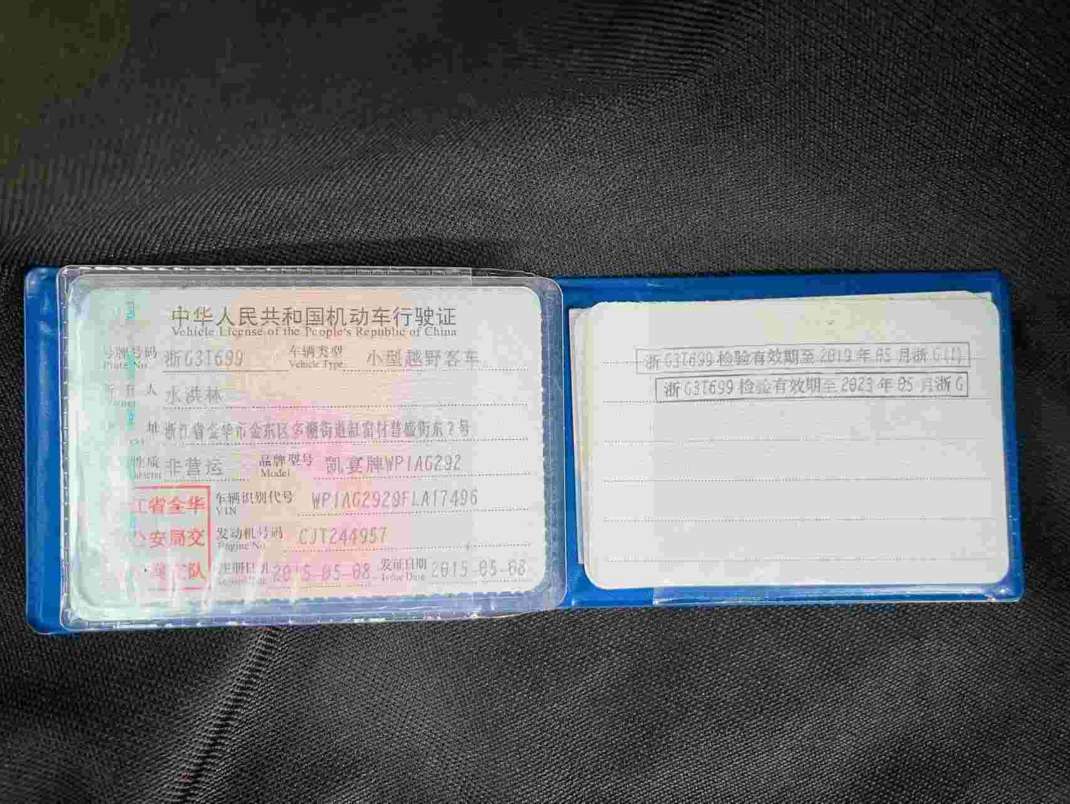 中华人民共和国机动车行驶证
Vehicle License of the People's Republic of China
号牌号码 浙G3T699 车辆类型 小型越野客车
Plate No. Vehicle Type
人 水洪林
址 浙江省金华市金东区多湖街道 村 街东2号
性质 非营运 品牌型号 凯宴牌WP1AG292
Model
江省金华
公安局交
车辆识别代号 WP1AG2929FLA17496
VIN
发动机号码 CJT244957
Engine No.
队
注册日期 2015-05-08 发证日期 2015-05-08
Issue Date
浙G3T699检验有效期至2019年05月浙G(1)
浙G3T699检验有效期至2023年05月浙G